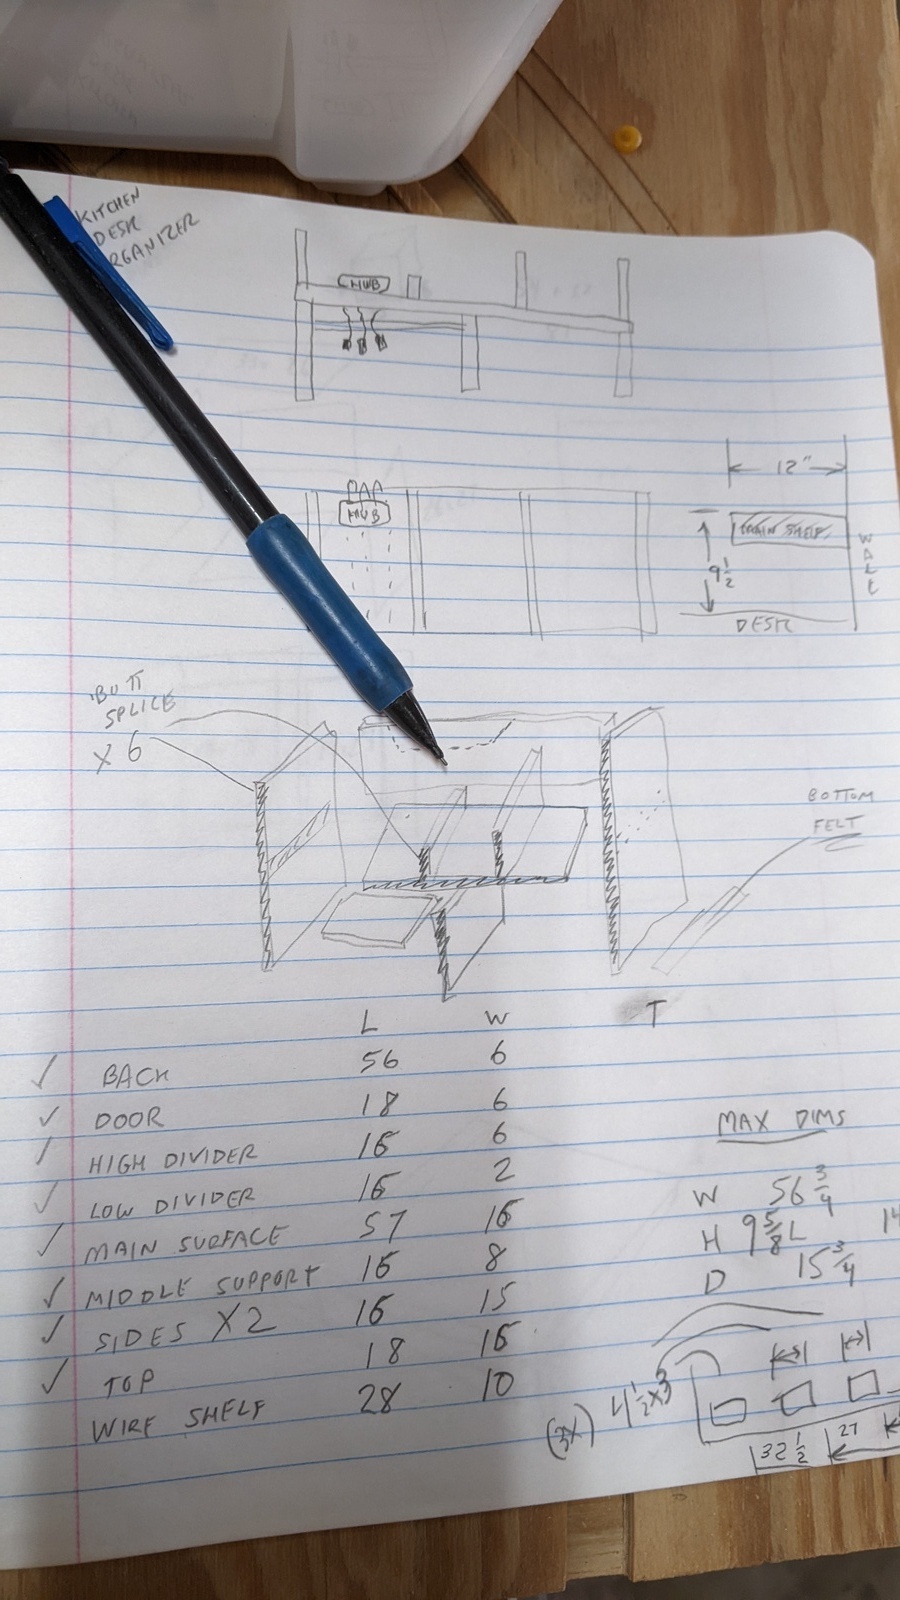 KITCHEN
DESK
ORGANIZER
HUB
HUB
12"
MAIN SHELF
9 1/2
WALL
DESK
BUTT
SPLICE
X 6
BOTTOM
FELT
L W T
✓ BACK 56 6
✓ DOOR 18 6
✓ HIGH DIVIDER 16 6
✓ LOW DIVIDER 16 2
✓ MAIN SURFACE 57 16
✓ MIDDLE SUPPORT 16 8
✓ SIDES X2 16 15
✓ TOP 18 16
WIRE SHELF 28 10
MAX DIMS
W 56 3/4
H 9 5/8 L 14
D 15 3/4
(3X) 4 1/2 x 3
32 1/2 27